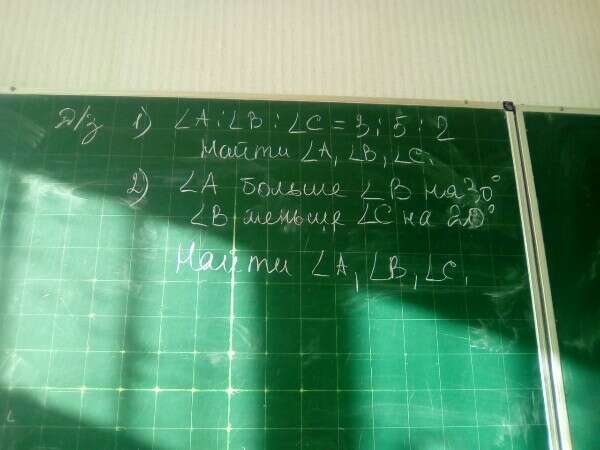 Д/з 1) ∠A : ∠B : ∠C = 3 : 5 : 2
Найти ∠A, ∠B, ∠C.
2) ∠A больше ∠B на 30°
∠B меньше ∠C на 20°
Найти ∠A, ∠B, ∠C.